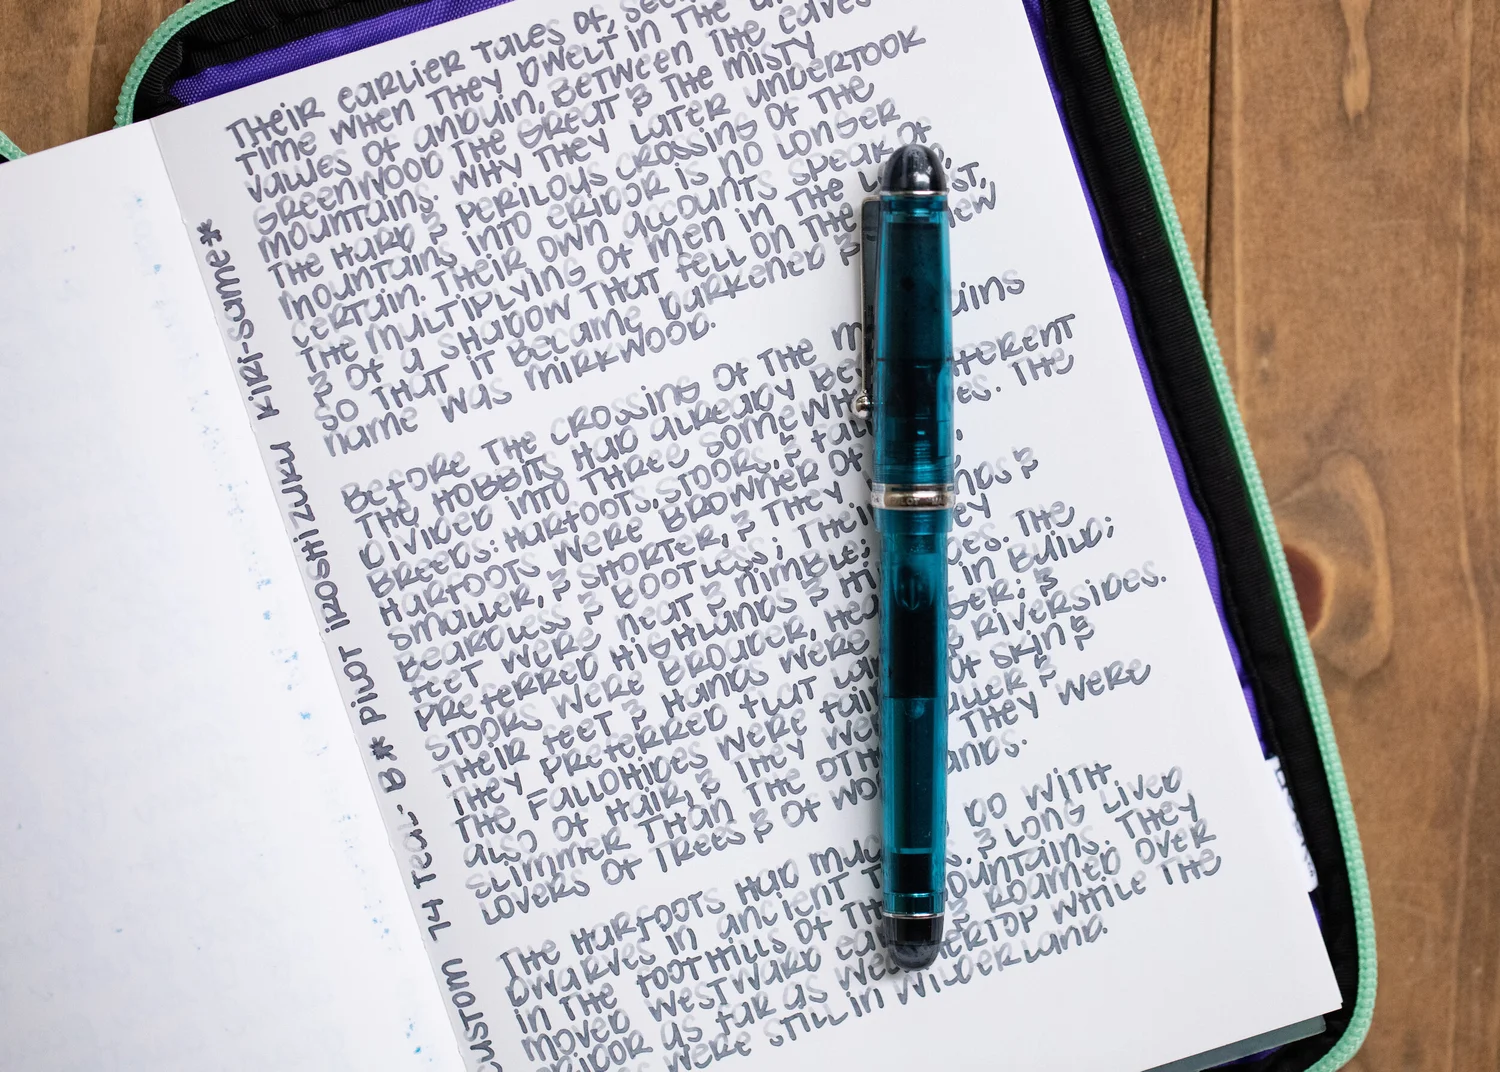 THEIR EARLIER TALES OF, SEE
TIME WHEN THEY DWELT IN THE
VALLIES OF ANDUIN, BETWEEN THE EAVES
GREENWOOD THE GREAT & THE MISTY
MOUNTAINS. WHY THEY LATER UNDERTOOK
THE HARD & PERILOUS CROSSING OF THE
MOUNTAINS INTO ERIDOR IS NO LONGER
CERTAIN. THEIR OWN ACCOUNTS SPEAK OF
THE MULTIPLYING OF MEN IN THE
& OF A SHADOW THAT FELL ON THE
SO THAT IT BECAME DARKENED & NEW
NAME WAS MIRKWOOD.
BEFORE THE CROSSING OF THE
THE HOBBITS HAD ALREADY DIFFERENT
DIVIDED INTO THREE SOMEWHAT THE
BREEDS: HARFOOTS, STOORS, &
HARFOOTS WERE BROWNER OF
SMALLER, & SHORTER, & THEY
BEARDLESS & BOOTLESS; THEIR &
FEET WERE NEAT & NIMBLE; THEY
PREFERRED HIGHLANDS & THE
STOORS WERE BROADER, IN BUILD;
THEIR FEET & HANDS WERE &
THEY PREFERRED FLAT RIVERSIDES.
THE FALLOHIDES WERE OF SKIN &
ALSO OF HAIR, & THEY &
SLIMMER THAN THE THEY WERE
LOVERS OF TREES & OF
THE HARFOOTS HAD DO WITH
DWARVES IN ANCIENT & LONG LIVED
IN THE FOOTHILLS OF THE THEY
MOVED WESTWARD & ROAMED OVER
ERIDOR AS FAR AS WHILE THE
WERE STILL IN WILDERLAND.
CUSTOM 74 TEAL- B* PILOT IROSHIZUKU KIRI-SAME*